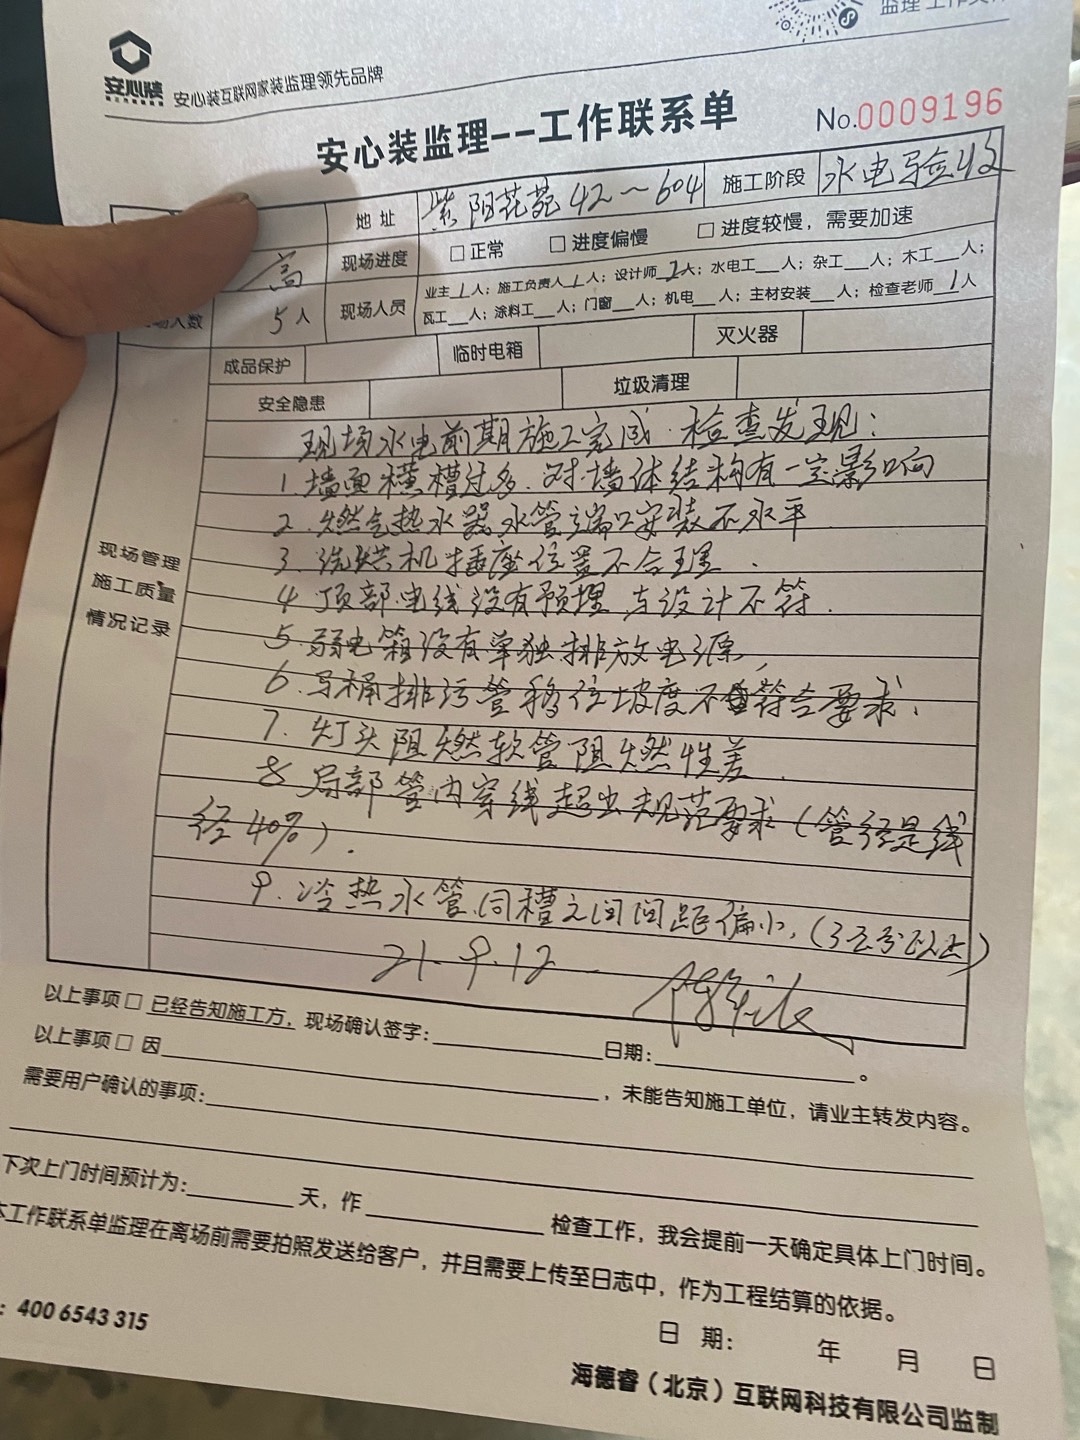 安心装
安心装互联网家装监理领先品牌
安心装监理--工作联系单
No.0009196
地 址 紫阳花苑42~604 施工阶段 水电验收
高 现场进度 □ 正常 □ 进度偏慢 □ 进度较慢，需要加速
场人数 5人 现场人员 业主1人；施工负责人1人；设计师2人；水电工__人；杂工__人；木工__人；
瓦工__人；涂料工__人；门窗__人；机电__人；主材安装__人；检查老师1人
成品保护 临时电箱 灭火器
安全隐患 垃圾清理
现场管理
施工质量
情况记录
现场水电前期施工完成.检查发现：
1.墙面横槽过多.对墙体结构有一定影响
2.燃气热水器水管端口安装不水平
3.洗烘机插座位置不合理.
4.顶部电线没有预埋,与设计不符.
5.弱电箱没有单独排放电源,
6.马桶排污管移位坡度不符合要求.
7.灯头阻燃软管阻燃性差.
8.局部管内穿线超出规范要求(管径是线
径40%).
9.冷热水管.同槽之间间距偏小,(
21.9.12
以上事项 □ 已经告知施工方，现场确认签字：__________日期：__________。
以上事项 □ 因__________，未能告知施工单位，请业主转发内容。
需要用户确认的事项：__________
下次上门时间预计为：______天，作__________检查工作，我会提前一天确定具体上门时间。
本工作联系单监理在离场前需要拍照发送给客户，并且需要上传至日志中，作为工程结算的依据。
: 400 6543 315
日 期： 年 月 日
海德睿（北京）互联网科技有限公司监制